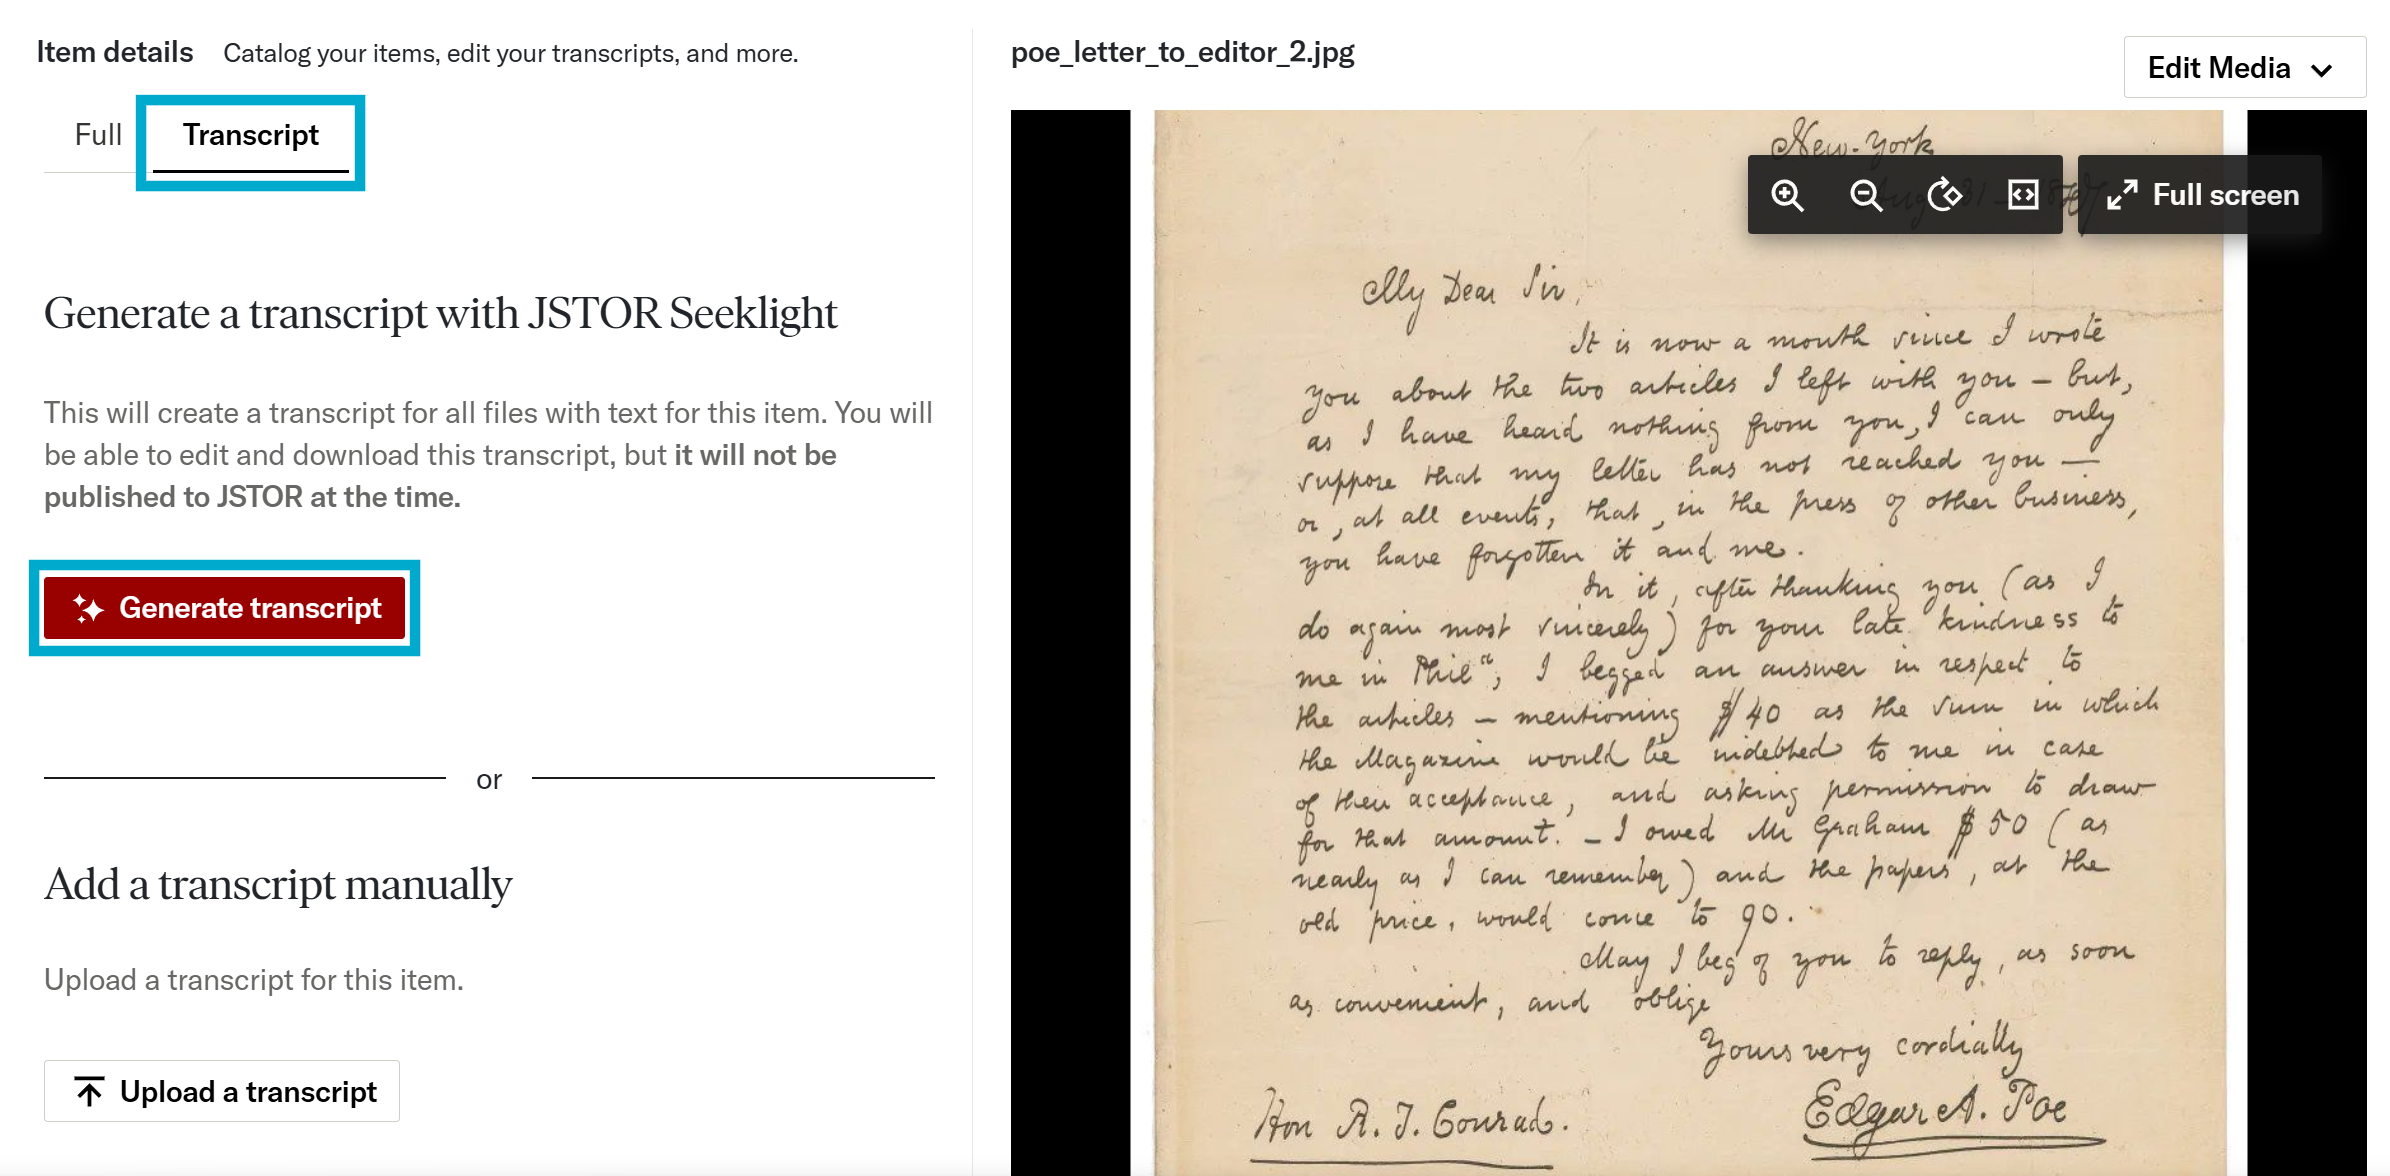 Item details Catalog your items, edit your transcripts, and more.
Full Transcript
Generate a transcript with JSTOR Seeklight
This will create a transcript for all files with text for this item. You will
be able to edit and download this transcript, but it will not be
published to JSTOR at the time.
Generate transcript
or
Add a transcript manually
Upload a transcript for this item.
Upload a transcript
poe_letter_to_editor_2.jpg
Edit Media
Full screen
New-York
Aug 31 –
My Dear Sir,
It is now a month since I wrote
you about the two articles I left with you – but,
as I have heard nothing from you, I can only
suppose that my letter has not reached you —
or, at all events, that, in the press of other business,
you have forgotten it and me.
In it, after thanking you (as I
do again most sincerely) for your late kindness to
me in Philª, I begged an answer in respect to
the articles – mentioning $40 as the sum in which
the Magazine would be indebted to me in case
of their acceptance, and asking permission to draw
for that amount. – I owed Mr Graham $50 (as
nearly as I can remember) and the papers, at the
old price, would come to 90.
May I beg of you to reply, as soon
as convenient, and oblige
Yours very cordially
Edgar A. Poe
Hon R. T. Conrad.